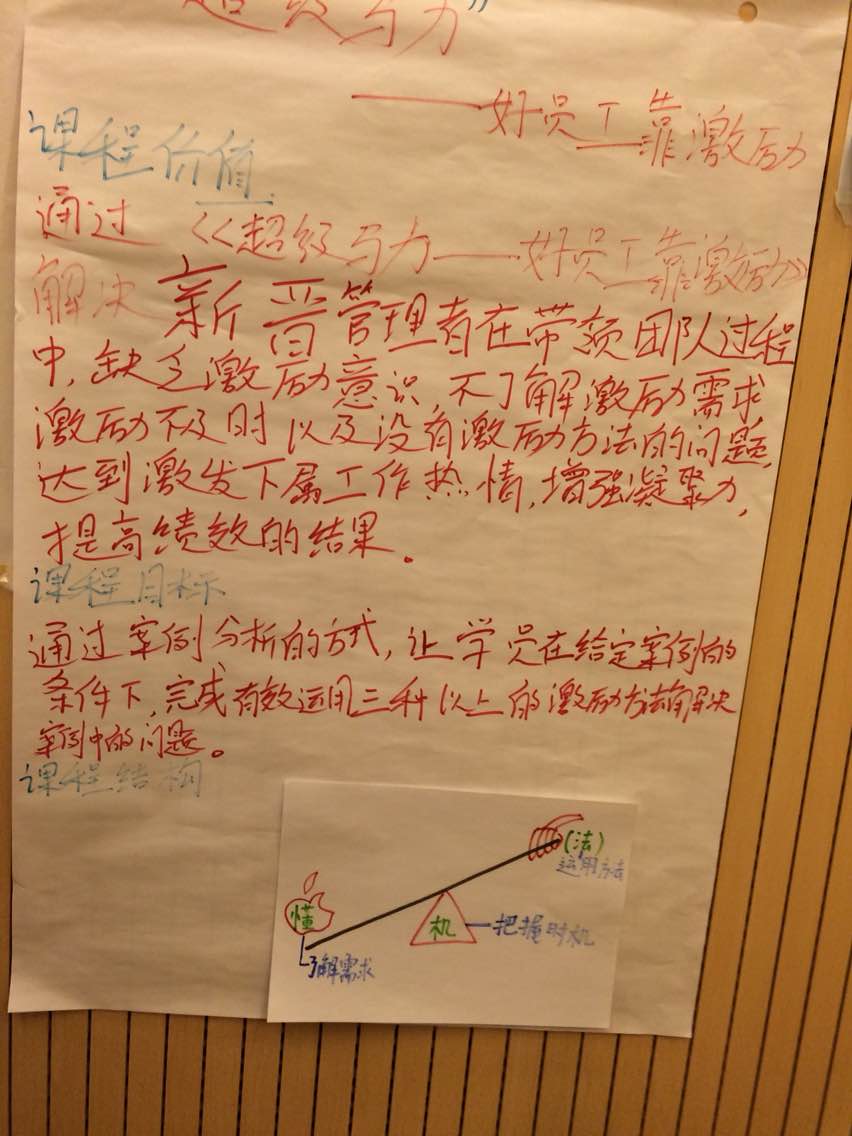 超级马力”
——好员工靠激励
课程价值
通过《超级马力——好员工靠激励》
解决新晋管理者在带领团队过程
中,缺乏激励意识,不了解激励需求,
激励不及时以及没有激励方法的问题,
达到激发下属工作热情,增强凝聚力,
提高绩效的结果。
课程目标
通过案例分析的方式,让学员在给定案例的
条件下,完成有效运用三种以上的激励方法解决
案例中的问题。
课程结构
(法)
运用方法
懂
机
把握时机
了解需求